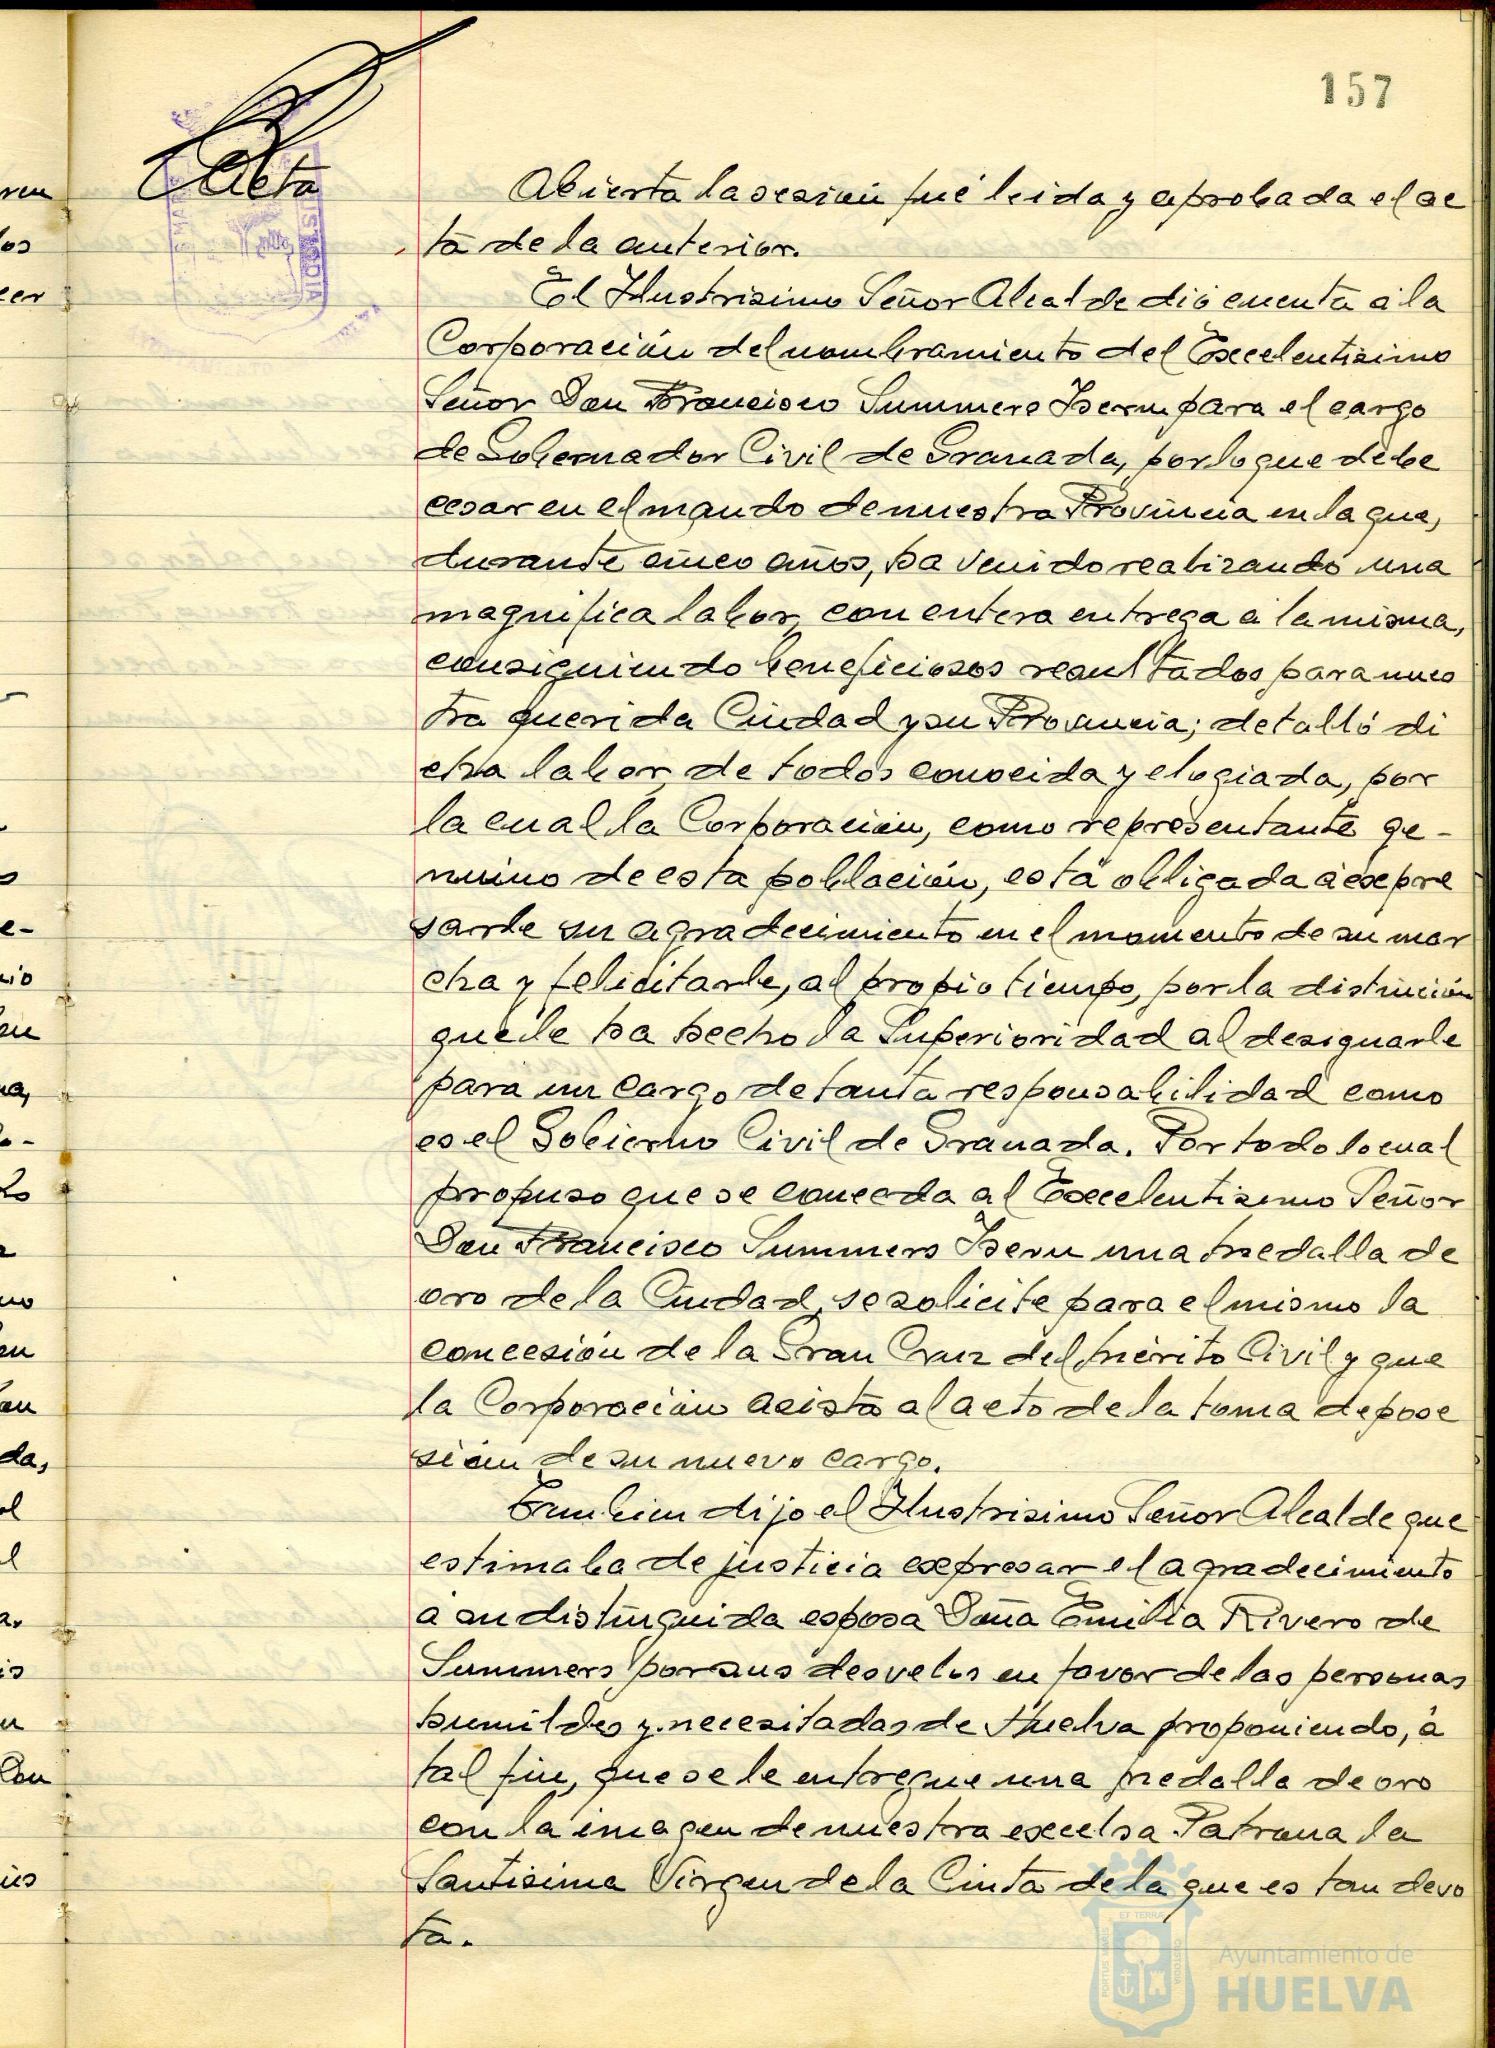 157
Acta
Abierta la sesión fué leida y aprobada el ac
ta de la anterior.
El Ilustrisimo Señor Alcalde dió cuenta á la
Corporación del nombramiento del Excelentisimo
Señor Don Francisco Summers Isern para el cargo
de Gobernador Civil de Granada, por lo que debe
cesar en el mando de nuestra Provincia en la que,
durante cinco años, ha venido realizando una
magnifica labor, con entera entrega á la misma,
consiguiendo beneficiosos resultados para nues
tra querida Ciudad y su Provincia; detalló di
cha labor, de todos conocida y elogiada, por
la cual la Corporación, como representante ge-
nuino de esta población, está obligada á expre
sarle su agradecimiento en el momento de su mar
cha y felicitarle, al propio tiempo, por la distinción
que le ha hecho la Superioridad al designarle
para un cargo de tanta responsabilidad como
es el Gobierno Civil de Granada. Por todo lo cual
propuso que se conceda al Excelentisimo Señor
Don Francisco Summers Isern una medalla de
oro de la Ciudad, se solicite para el mismo la
concesión de la Gran Cruz del Mérito Civil y que
la Corporación asista al acto de la toma de pose
sión de su nuevo cargo.
Tambien dijo el Ilustrisimo Señor Alcalde que
estimaba de justicia expresar el agradecimiento
á su distinguida esposa Doña Emilia Rivero de
Summers por sus desvelos en favor de las personas
humildes y necesitadas de Huelva proponiendo, á
tal fin, que se le entregue una medalla de oro
con la imagen de nuestra excelsa Patrona la
Santisima Virgen de la Cinta de la que es tan devo
ta.
Ayuntamiento de
HUELVA